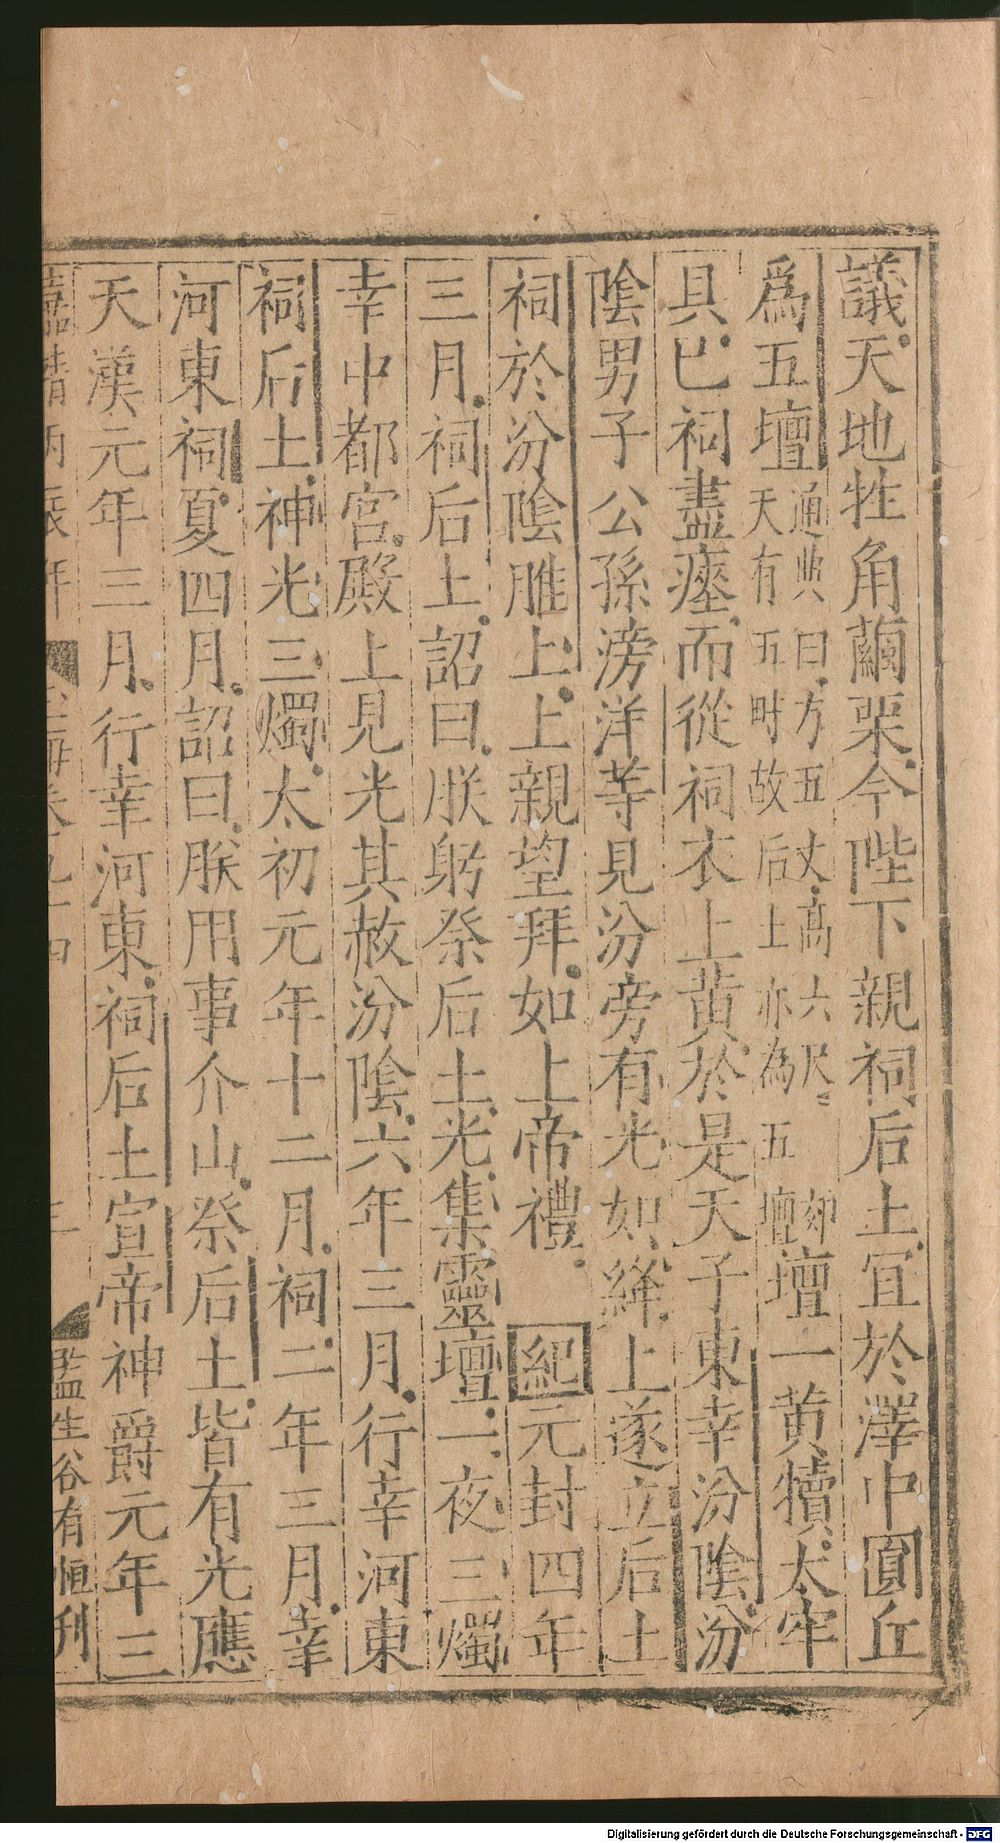 議天地牲角繭栗今陛下親祠后土宜於澤中圓丘
爲五壇通典曰方五丈高六尺天有五畤故后土亦為五壇壇一黃犢太牢
具已祠盡瘞而從祠衣上黃於是天子東幸汾陰汾
陰男子公孫滂洋等見汾旁有光如絳上遂立后土
祠於汾陰脽上上親望拜如上帝禮 紀元封四年
三月祠后土詔曰朕躬祭后土光集靈壇一夜三燭
幸中都宮殿上見光其赦汾陰六年三月行幸河東
祠后土神光三燭太初元年十二月祠二年三月幸
河東祠夏四月詔曰朕用事介山祭后土皆有光應
天漢元年三月行幸河東祠后土宣帝神爵元年三
嘉靖丙辰年 玉海卷九十四 監生谷有恒刊
Digitalisierung gefördert durch die Deutsche Forschungsgemeinschaft - DFG